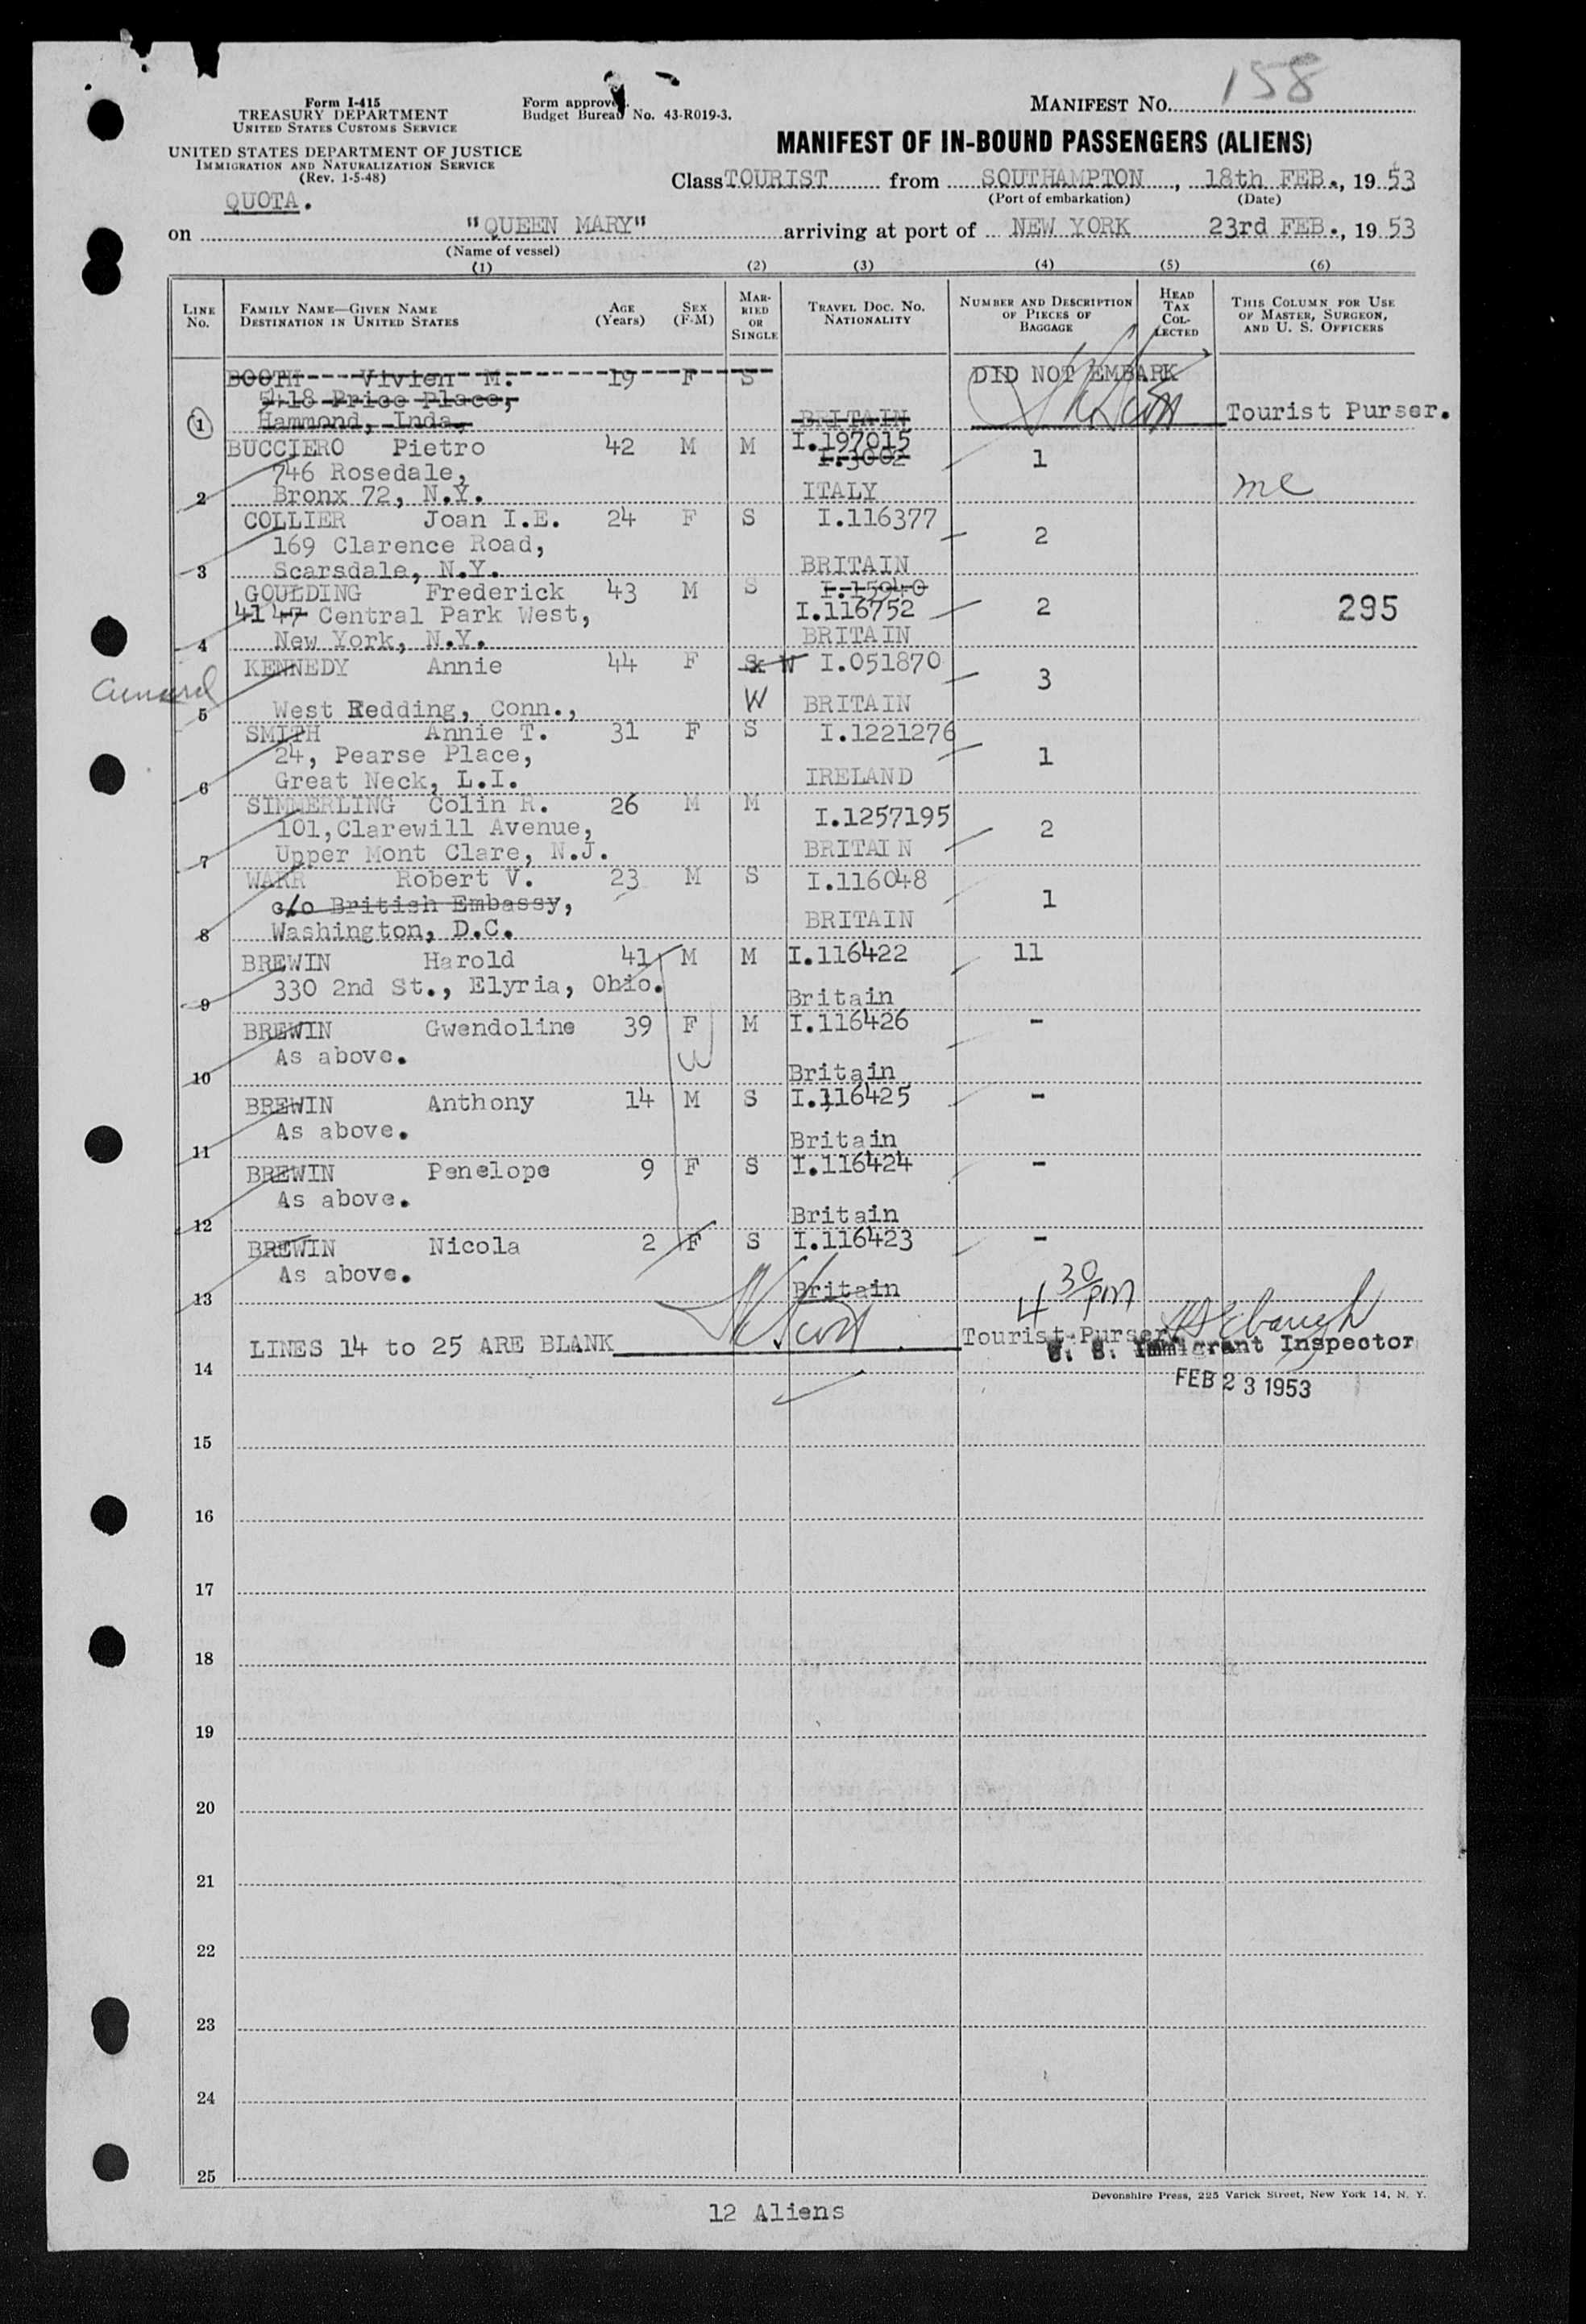 158
Form I-415
TREASURY DEPARTMENT
UNITED STATES CUSTOMS SERVICE
UNITED STATES DEPARTMENT OF JUSTICE
IMMIGRATION AND NATURALIZATION SERVICE
(Rev. 1-5-48)
Form approved.
Budget Bureau No. 43-R019-3.
MANIFEST NO.
MANIFEST OF IN-BOUND PASSENGERS (ALIENS)
Class TOURIST from SOUTHAMPTON, 18th FEB., 1953
(Port of embarkation) (Date)
QUOTA.
on "QUEEN MARY" arriving at port of NEW YORK 23rd FEB., 1953
(Name of vessel)
(1) (2) (3) (4) (5) (6)
LINE No. FAMILY NAME—GIVEN NAME DESTINATION IN UNITED STATES AGE (Years) SEX (F-M) MARRIED OR SINGLE TRAVEL DOC. NO. NATIONALITY NUMBER AND DESCRIPTION OF PIECES OF BAGGAGE HEAD TAX COLLECTED THIS COLUMN FOR USE OF MASTER, SURGEON, AND U. S. OFFICERS
BOOTH Vivien M. 19 F S DID NOT EMBARK
5418 Price Place,
1 Hammond, Inda. BRITAIN Tourist Purser.
BUCCIERO Pietro 42 M M I.197015
I.3002
746 Rosedale, 1
2 Bronx 72, N.Y. ITALY
COLLIER Joan I.E. 24 F S I.116377
169 Clarence Road, 2
3 Scarsdale, N.Y. BRITAIN
GOULDING Frederick 43 M S I.15940
41 47 Central Park West, I.116752 2 295
4 New York, N.Y. BRITAIN
KENNEDY Annie 44 F S W I.051870
3
Cunard
5 West Redding, Conn., W BRITAIN
SMITH Annie T. 31 F S I.1221276
24, Pearse Place, 1
6 Great Neck, L.I. IRELAND
SIMMERLING Colin R. 26 M M I.1257195
101, Clarewill Avenue, 2
7 Upper Mont Clare, N.J. BRITAIN
WARR Robert V. 23 M S I.116048
c/o British Embassy, 1
8 Washington, D.C. BRITAIN
BREWIN Harold 41 M M I.116422 11
330 2nd St., Elyria, Ohio.
9 Britain
BREWIN Gwendoline 39 F M I.116426 -
As above.
10 Britain
BREWIN Anthony 14 M S I.116425 -
As above.
11 Britain
BREWIN Penelope 9 F S I.116424 -
As above.
12 Britain
BREWIN Nicola 2 F S I.116423 -
As above.
13 Britain
4 30 pm
LINES 14 to 25 ARE BLANK Tourist Purser.
U. S. Immigrant Inspector
14
FEB 23 1953
15
16
17
18
19
20
21
22
23
24
25
Devonshire Press, 225 Varick Street, New York 14, N. Y.
12 Aliens